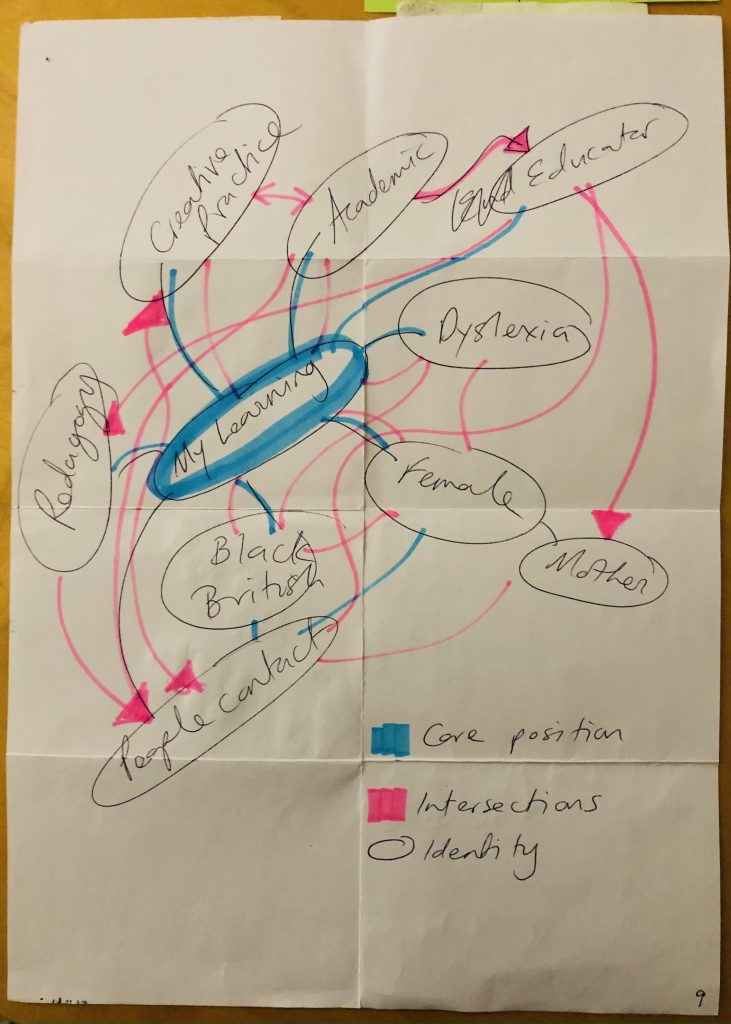 Creative
Practice
Academic
Educator
Dyslexia
My Learning
Pedagogy
Female
Black
British
Mother
People contact
Core position
Intersections
Identity
9